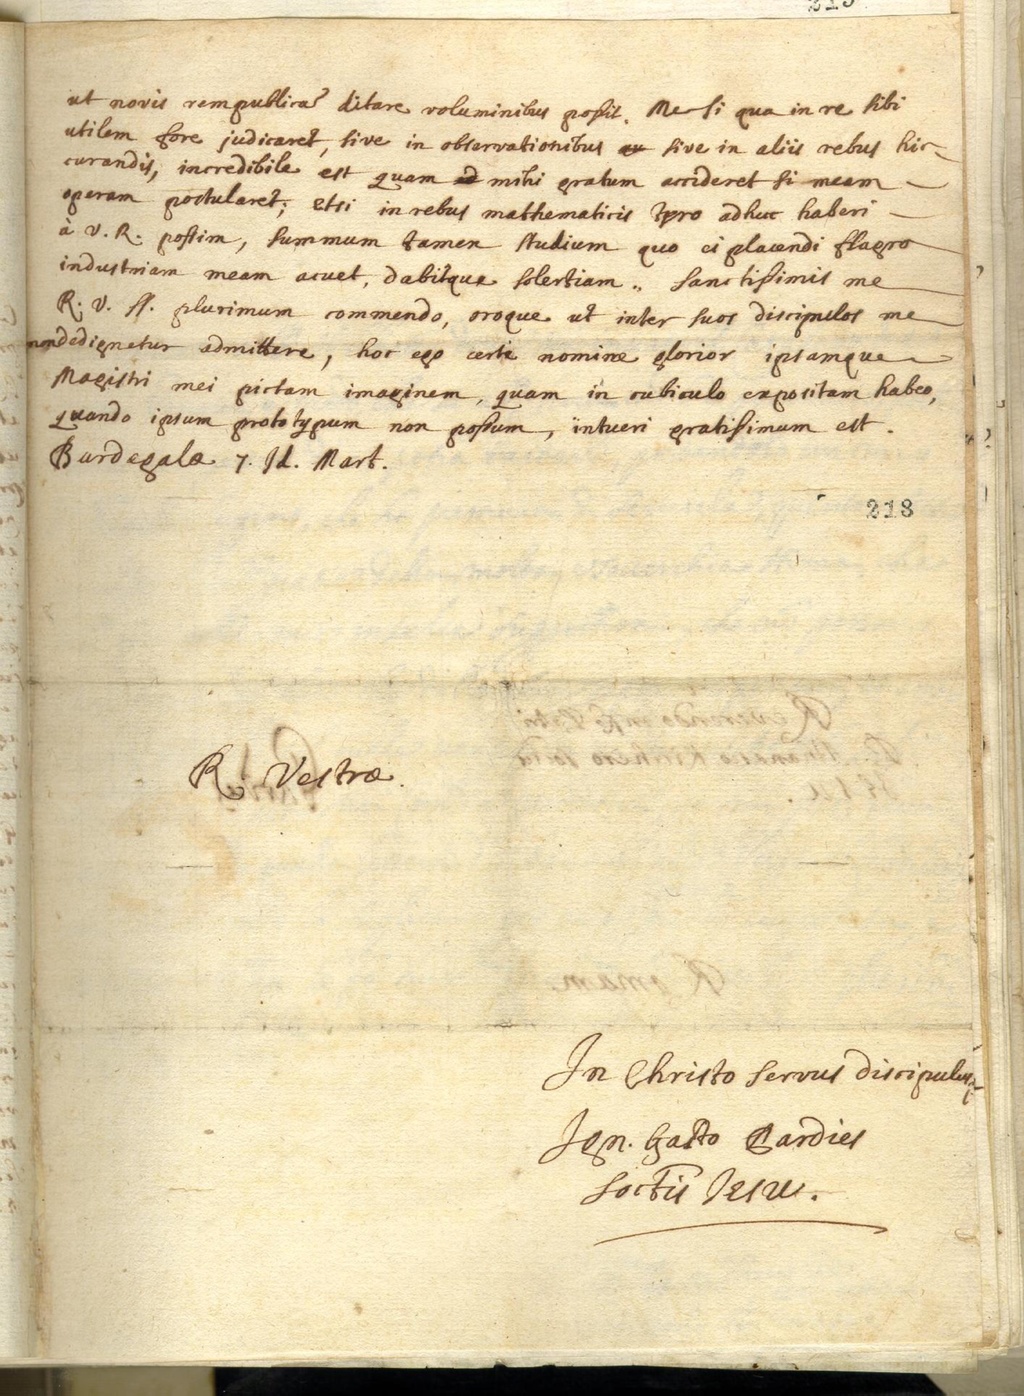 ut novis rempublicã ditare voluminibus possit. Me si qua in re sibi
utilem fore judicaret, sive in observationibus sive in aliis rebus hic
curandis, incredibile est quam mihi gratum accideret si meam
operam postularet; etsi in rebus mathematicis tyro adhuc haberi
à V. R. possim, summum tamen studium quo ei placendi flagro
industriam meam acuet, dabitque solertiam. Sanctissimis me
R. V. ss. plurimum commendo, oroque ut inter suos discipulos me
non dedignetur admittere, hoc ego certe nomine glorior ipsamque
Magistri mei pictam imaginem, quam in cubiculo expositam habeo,
quando ipsum prototypum non possum, intueri gratissimum est.
Burdegalæ 7. Id. Mart.
218
R. Vestræ.
Reverendo in Xo Patri
P. Athanasio Kirchero Socts
Jesu.
Romam.
In Christo servus discipulusq;
Ign. Gasto Pardies
Soctis Jesu.